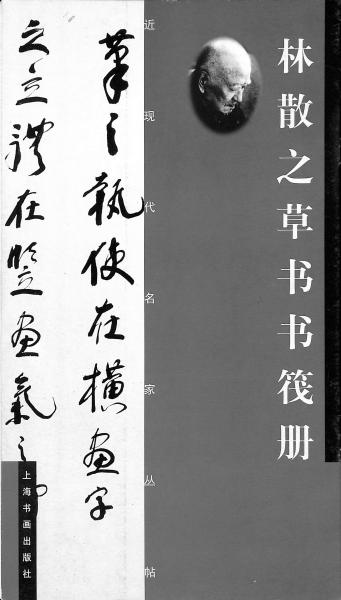 林散之草书书筏册
近现代名家丛帖
筆之執使在横畫字
之立體在竖畫氣之
上海书画出版社